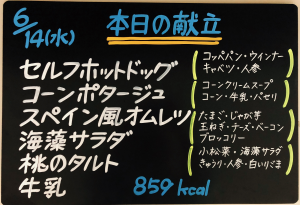 6/14(水)
本日の献立
セルフホットドッグ
コーンポタージュ
スペイン風オムレツ
海藻サラダ
桃のタルト
牛乳
859 kcal
コッペパン・ウインナー
キャベツ・人参
コーンクリームスープ
コーン・牛乳・パセリ
たまご・じゃが芋
玉ねぎ・チーズ・ベーコン
ブロッコリー
小松菜・海藻サラダ
きゅうり・人参・白いりごま